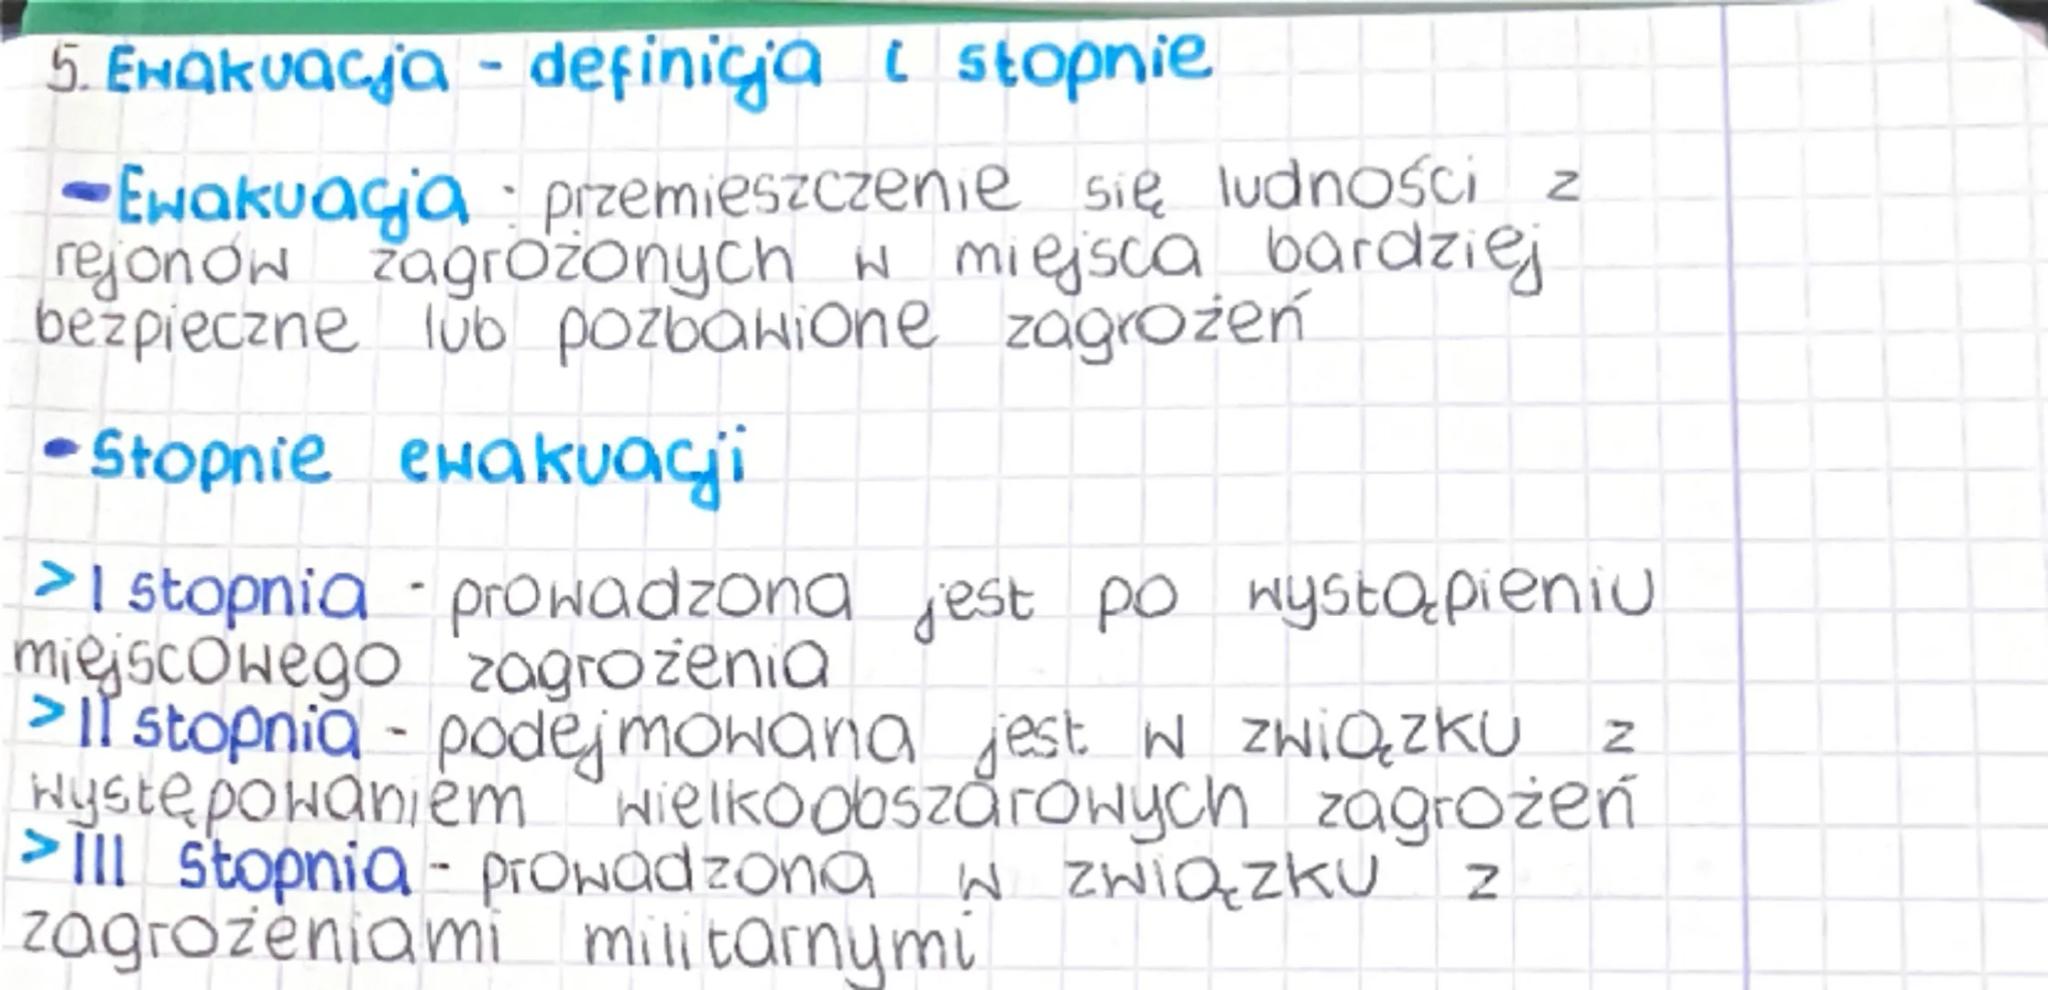 5. Ewakuacja - definicja i stopnie
- Ewakuacja - przemieszczenie się ludności z
rejonów zagrożonych w miejsca bardziej
bezpieczne lub pozbawione zagrożeń
- Stopnie ewakuacji
> I stopnia - prowadzona jest po wystąpieniu
miejscowego zagrożenia
> II stopnia - podejmowana jest w związku z
występowaniem wielkoobszarowych zagrożeń
> III stopnia - prowadzona w związku z
zagrożeniami militarnymi